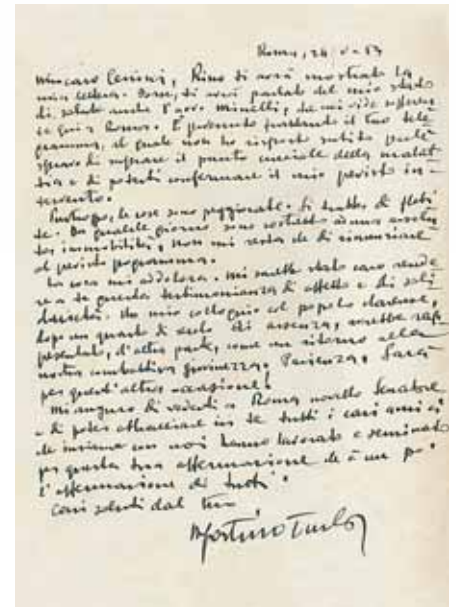 Roma, 24-V-53
Mio caro Cerioni, Rino ti avrà mostrato la
mia lettera. Forse, ti avrà parlato del mio stato
di salute anche l'avv. Minelli, che mi vide sofferen
te qui a Roma. È pervenuto frattanto il tuo tele
gramma, al quale non ho risposto subito perché
speravo di superare il punto cruciale della malat
tia e di poterti confermare il mio previsto in-
tervento.
Purtroppo, le cose sono peggiorate. Si tratta di flebi
te. Da qualche giorno sono costretto ad una assolu
ta immobilità, non mi resta che di rinunciare
al previsto programma.
La cosa mi addolora. Mi sarebbe stato caro rende
re a te questa testimonianza di affetto e di soli
darietà. Un mio colloquio col popolo
dopo un quarto di secolo di assenza, sarebbe rap
presentato, d'altra parte, come un ritorno alla
nostra combattiva giovinezza. Pazienza, Sarà
per quest'altra occasione!
Mi auguro di vederti a Roma novello Senatore
e di poter abbracciare in te tutti i cari amici
che insieme con noi hanno lavorato e seminato
per questa tua affermazione che è un po'
l'affermazione di tutti.
Cari saluti dal tuo